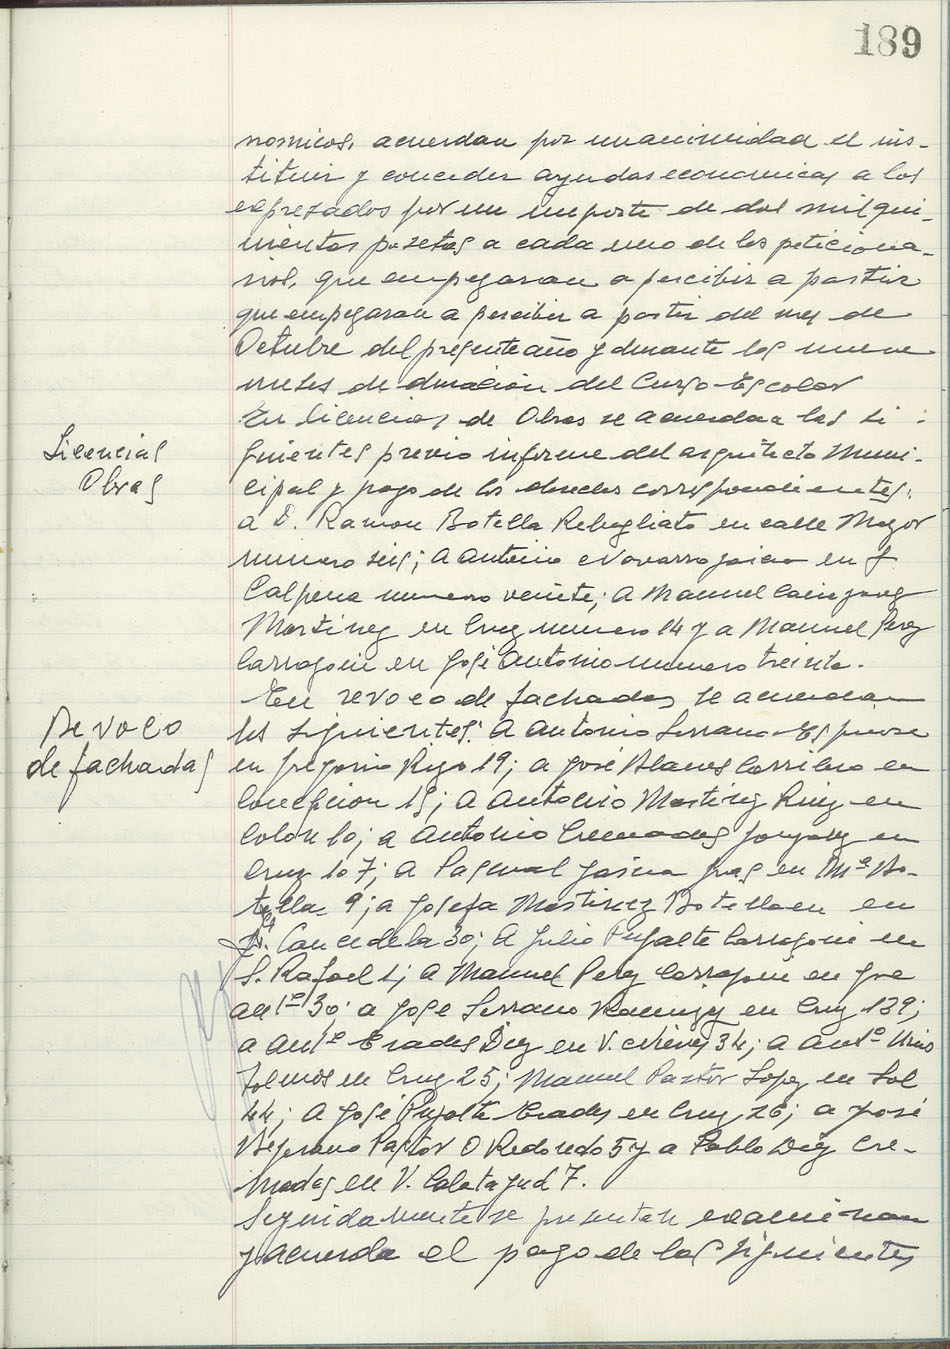 189
nomicos, acuerdan por unanimidad el ins-
tituir y conceder ayudas economicas a los
expresados por un importe de dos mil qui-
nientas pesetas a cada uno de los peticiona-
rios, que empezaran a percibir a partir
que empezaran a percibir a partir del mes de
Octubre del presente año y durante los nueve
meses de duracion del Curso Escolar
Licencias
Obras
En licencias de Obras se acuerdan las si-
guientes previo informe del arquitecto Muni-
cipal y pago de los derechos correspondientes:
a D. Ramon Botella Rebogliato en calle Mayor
numero seis; a Antonio Navarro en
Calpena numero veinte; a Manuel
Martinez en Cruz numero 14 y a Manuel Perez
Carragoni en José Antonio numero treinta.
Revoco
de fachadas
En revoco de fachadas se acuerdan
los siguientes: a Antonio Serrano
en Gregorio Rizo 19; a José Blanes Carrillo en
Concepcion 15; a Antonio Martinez Ruiz en
Colon 10; a Antonio Cremades en
Cruz 107; a Pascual en Mª Bo-
tella 9; a Josefa Martinez Botella en
Candela 30; a Julio Pujalte Carragoni en
S. Rafael 1; a Manuel Perez Carragoni en Jose
Antº 30; a Jose Serrano Ramirez en Cruz 139;
a Antº Erades Diez en V. Nieves 34; a Antº
en Cruz 25; Manuel Pastor Lopez en Sol
44; a José Pujalte Erades en Cruz 26; a José
Bejerano Pastor O Redondo 5 y a Pablo Diez Cre-
mades en V. Calatayud 7.
Seguidamente se presentan examinan
y acuerda el pago de las siguientes